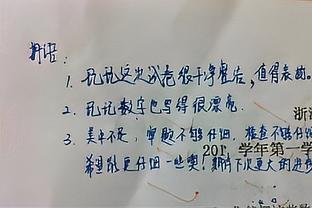 批语:
1. 孔孔这次试卷很干净整洁,值得表扬。
2. 孔孔数字也写得很漂亮.
3. 美中不足,审题不够仔细,检查不够仔细
浙
201 学年第一学
希望能更仔细一些奥,期待下次更大的进步